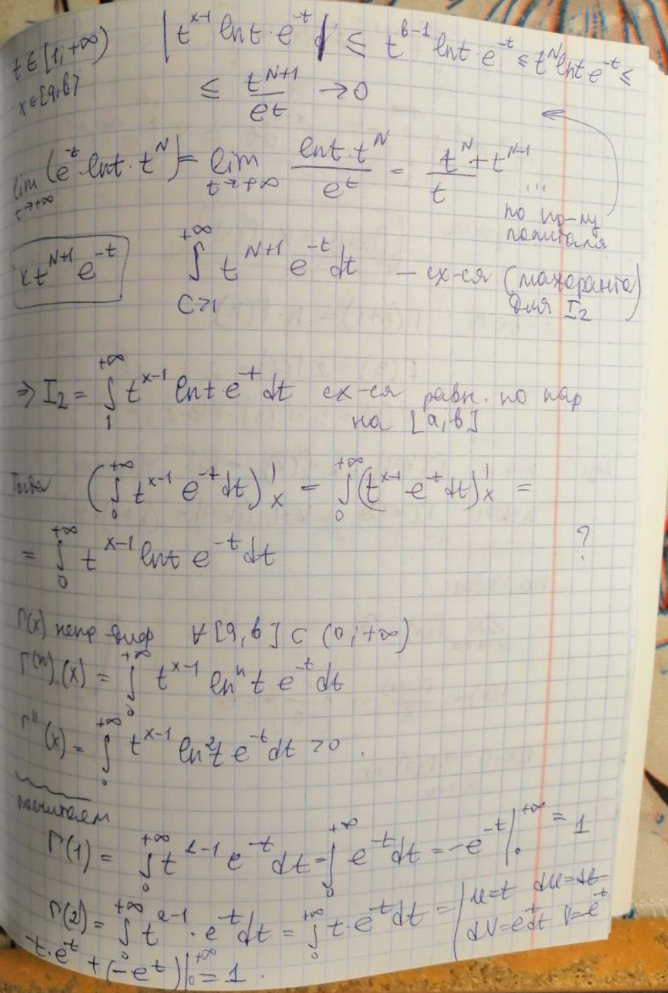 t ∈ [1, +∞) | t^{x-1} ln t · e^{-t} | ≤ t^{b-1} ln t · e^{-t} ≤ t^N ln t e^{-t} ≤
x ∈ [a, b] ≤ t^{N+1}/e^t → 0
lim_{t→+∞} (e^{-t} · ln t · t^N) = lim_{t→+∞} (ln t · t^N)/e^t = t^N/t + t^{N-1} ...
по пр-лу
лопиталя
< t^{N+1} e^{-t} ∫_{C>1}^{+∞} t^{N+1} e^{-t} dt — сх-ся (мажоранта
для I_2)
⇒ I_2 = ∫_1^{+∞} t^{x-1} ln t e^{-t} dt сх-ся равн. по пар
на [a, b]
Тогда (∫_0^{+∞} t^{x-1} e^{-t} dt)'_x = ∫_0^{+∞} (t^{x-1} e^{-t} dt)'_x =
= ∫_0^{+∞} t^{x-1} ln t e^{-t} dt ?
Γ(x) непр диф ∀ [a, b] ⊂ (0; +∞)
Γ^{(n)}(x) = ∫_0^{+∞} t^{x-1} ln^n t e^{-t} dt
Γ''(x) = ∫_0^{+∞} t^{x-1} ln^2 t e^{-t} dt > 0 .
посчитаем
Γ(1) = ∫_0^{+∞} t^{1-1} e^{-t} dt = ∫_0^{+∞} e^{-t} dt = -e^{-t} |_0^{+∞} = 1
Γ(2) = ∫_0^{+∞} t^{2-1} · e^{-t} dt = ∫_0^{+∞} t · e^{-t} dt = | u = t du = dt
dV = e^{-t} dt V = -e^{-t}
-t · e^{-t} + (-e^{-t}) |_0^{+∞} = 1 .